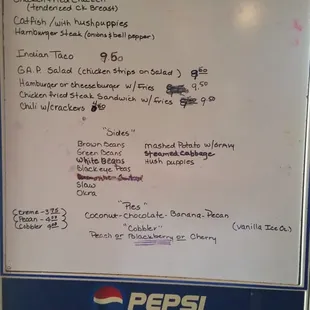 (tenderized CK Breast)
Catfish /with hushpuppies
Hamburger Steak (onions & bell pepper)
Indian Taco 9.50
G.A.P. Salad (chicken strips on Salad) 9.50
Hamburger or cheeseburger w/Fries 9.50
Chicken fried Steak Sandwich w/fries 9.50
Chili w/crackers
"Sides"
Brown Beans
mashed Potato w/Gravy
Green Beans
Steamed Cabbage
White Beans
Hush puppies
Blackeye Peas
Slaw
Okra
"Pies"
Coconut-Chocolate-Banana-Pecan
"Cobbler"
(Vanilla Ice Cr.)
Peach or Blackberry or Cherry
PEPSI